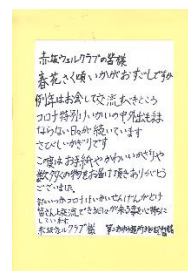 赤坂ウェルクラブの皆様
春花さく頃いかがおすごしですか
例年はお会して交流すべきところ
コロナ特別けいかいの中外出もまま
ならない日々が続いています
さびしいかぎりです
この度はお手紙やかわいいかざりや
数々の物をお届け頂きありがとう
ございました。
皆さんと交流できる日が来る事を心待ちに
しています
赤坂ウェルクラブ様